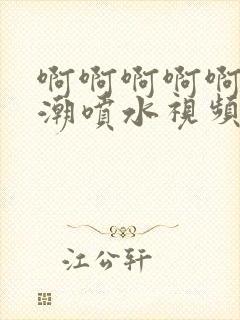 啊啊啊啊啊
潮噴水視頻
江公轩